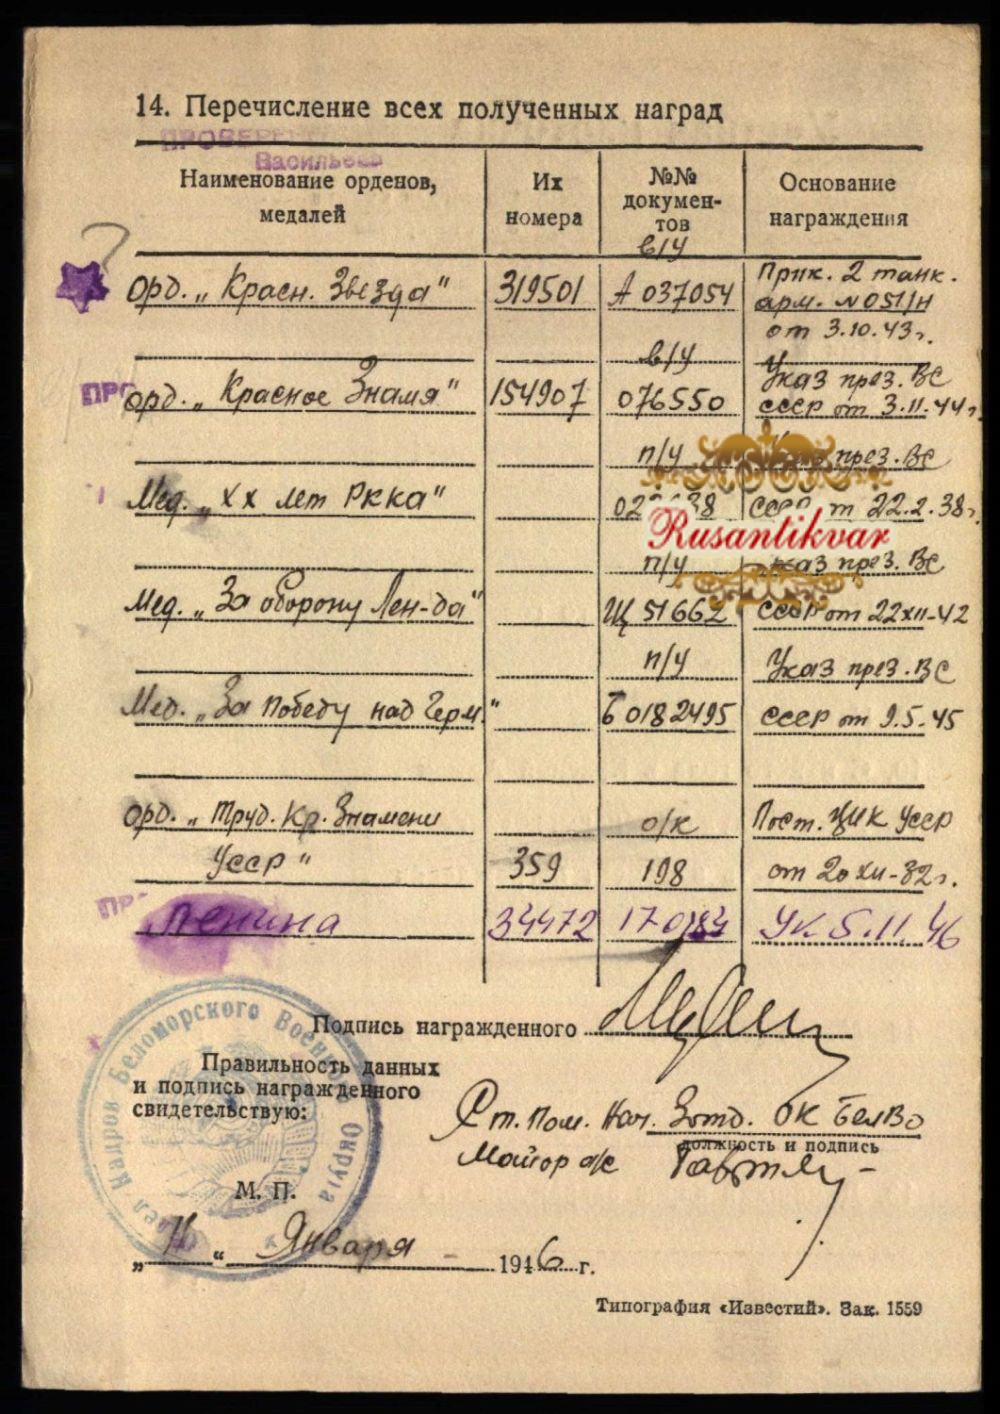 14. Перечисление всех полученных наград
ПРОВЕРЕНО
Васильева
Наименование орденов, медалей
Их номера
№№ документов
Основание награждения
в/у
Прик. 2 танк.
Орд. „Красн. Звезда" 319501 А 037054 арм. №051/н
от 3.10.43г.
в/у Указ през. ВС
Орд. „Красное Знамя" 154907 076550 СССР от 3.11.44г.
п/у през. ВС
Мед. „ХХ лет РККА" СССР от 22.2.38г.
Rusantikvar
п/у Указ през. ВС
Мед. „За оборону Лен-да" Щ 51662 СССР от 22XII-42
п/у Указ през. ВС
Мед. „За Победу над Герм." Б 0182495 СССР от 9.5.45
Орд. „Труд. Кр. Знамени о/к Пост. ЦИК УССР
УССР" 359 198 от 20 XII-32г.
Ленина 34472 Ук 5.11.46
Подпись награжденного
Правильность данных
и подпись награжденного
свидетельствую:
Ст. Пом. Нач. 3 отд. ОК БелВО
должность и подпись
Майор а/с
М. П.
Отдел Кадров Беломорского Военного Округа
„11" Января 1946 г.
Типография «Известий». Зак. 1559